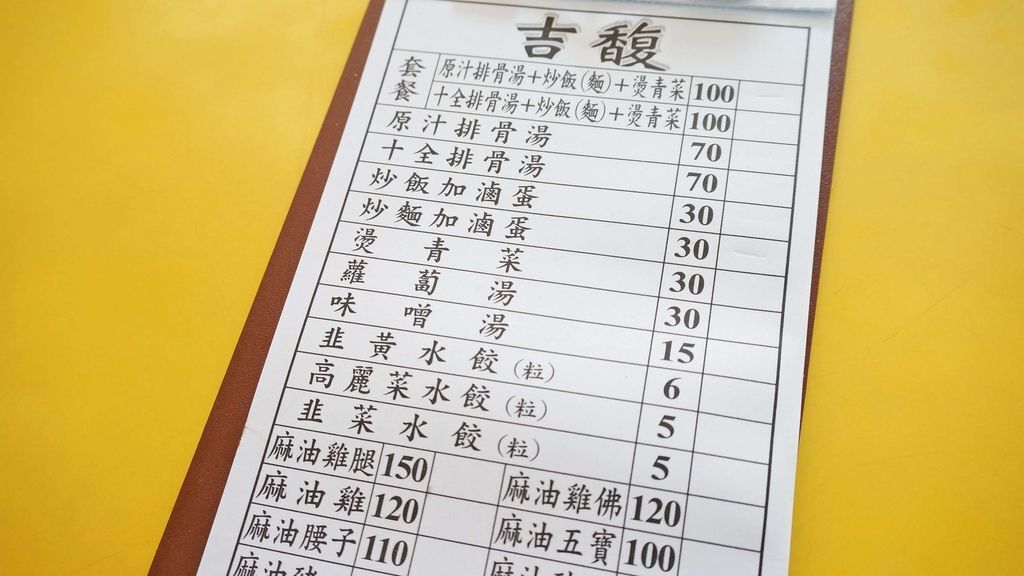 吉馥
套餐
原汁排骨湯+炒飯(麵)+燙青菜 100
十全排骨湯+炒飯(麵)+燙青菜 100
原汁排骨湯 70
十全排骨湯 70
炒飯加滷蛋 30
炒麵加滷蛋 30
燙青菜 30
蘿蔔湯 30
味噌湯 15
韭黃水餃(粒) 6
高麗菜水餃(粒) 5
韭菜水餃(粒) 5
麻油雞腿 150 麻油雞佛 120
麻油雞 120 麻油五寶 100
麻油腰子 110